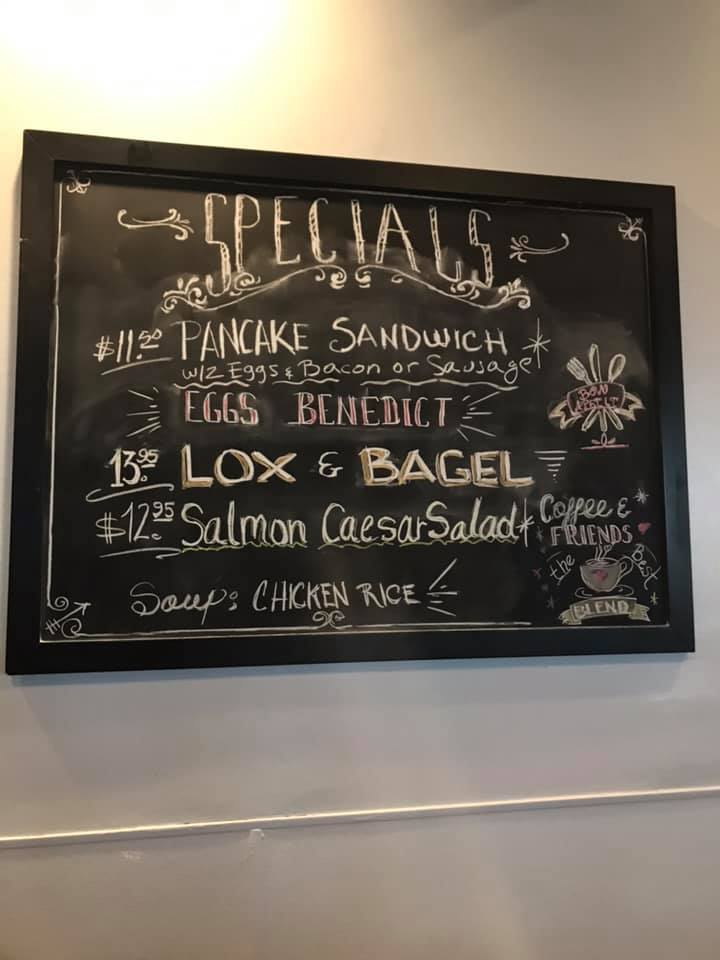 SPECIALS
$11.50 PANCAKE SANDWICH
w/2 Eggs & Bacon or Sausage
EGGS BENEDICT
13.95 LOX & BAGEL
$12.95 Salmon Caesar Salad
Soup: CHICKEN RICE
BON
Coffee &
FRIENDS
the Best
BLEND